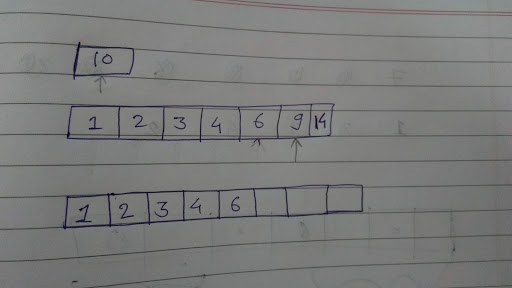 10
1 2 3 4 6 9 14
1 2 3 4. 6